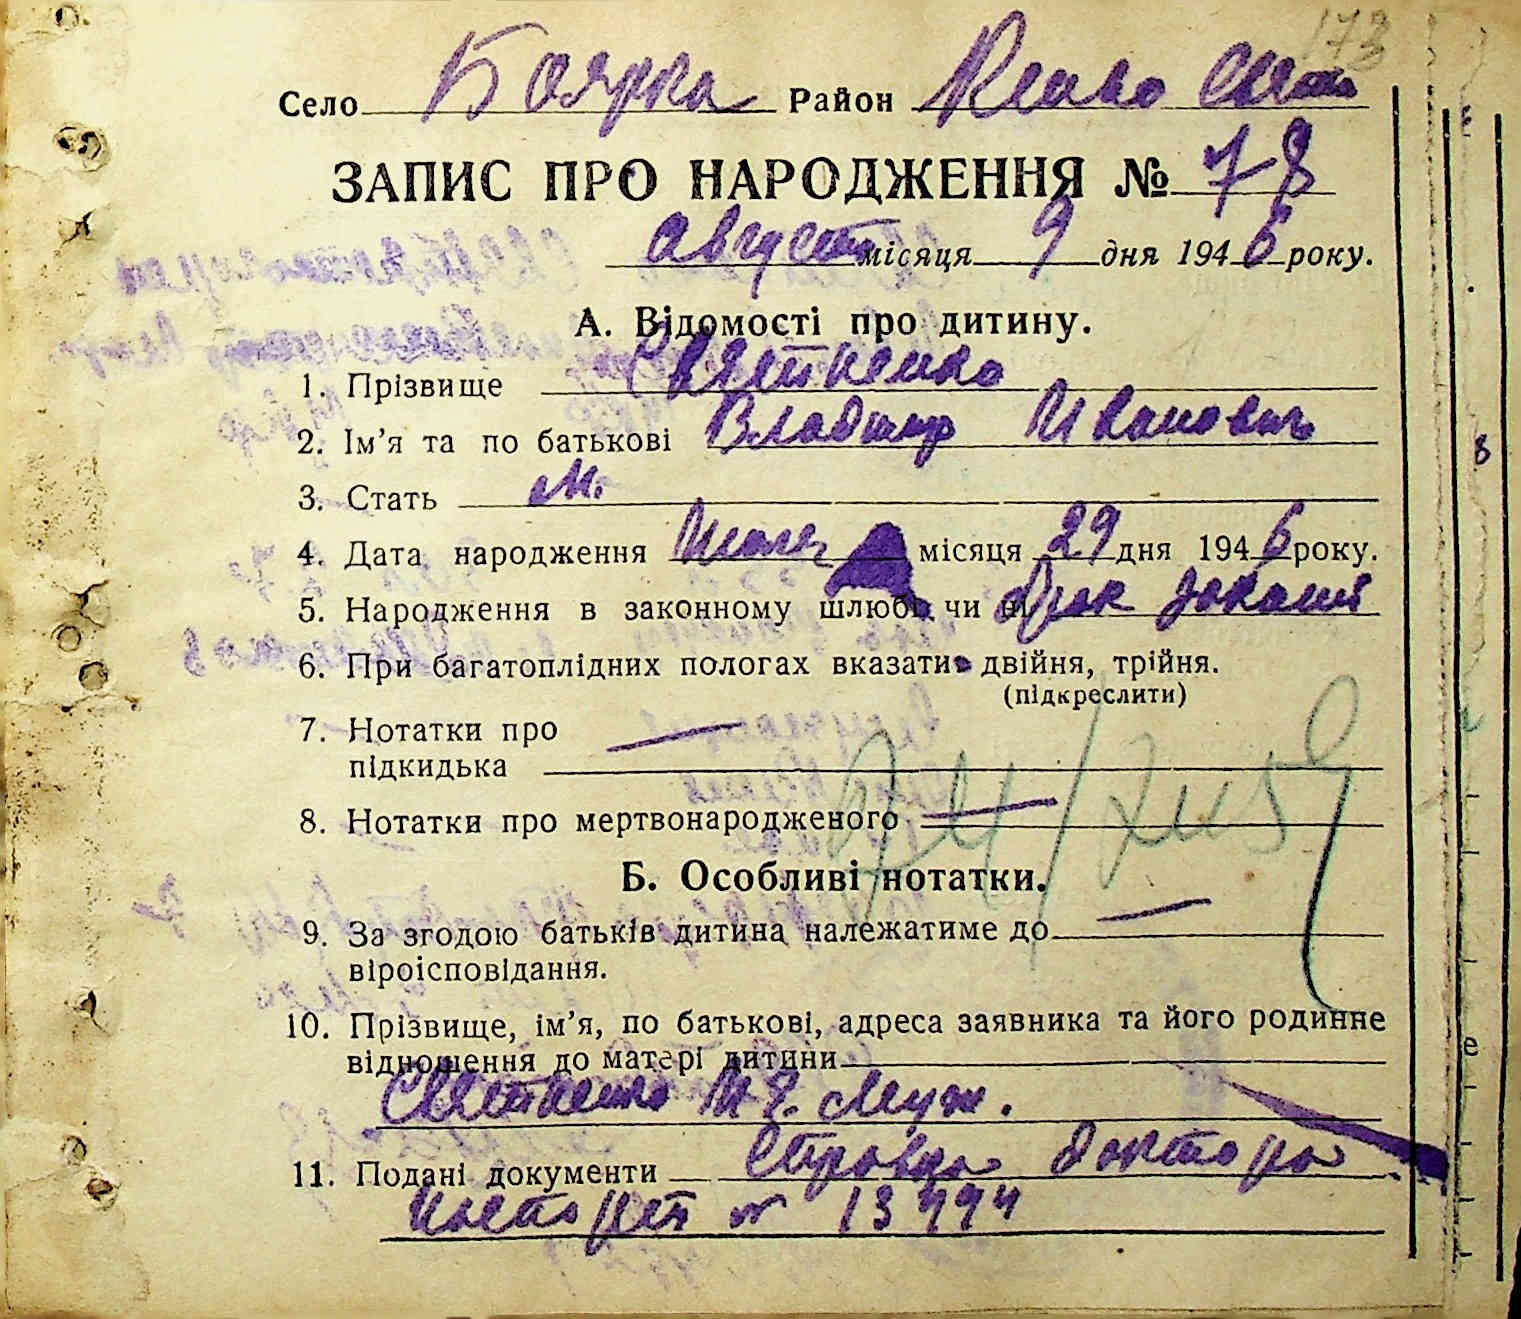 173
Село Боярка Район Киево Свят
ЗАПИС ПРО НАРОДЖЕННЯ № 78
август місяця 9 дня 1946 року.
А. Відомості про дитину.
1. Прізвище Святненко
2. Ім'я та по батькові Владимир Иванович
3. Стать м.
4. Дата народження Июля місяця 29 дня 1946 року.
5. Народження в законному шлюбі чи ні брак законн
6. При багатоплідних пологах вказати двійня, трійня.
(підкреслити)
7. Нотатки про —
підкидька
8. Нотатки про мертвонародженого —
Б. Особливі нотатки.
9. За згодою батьків дитина належатиме до —
віроісповідання.
10. Прізвище, ім'я, по батькові, адреса заявника та його родинне
відношення до матері дитини
Святненко И Я. муж.
11. Подані документи Справка доктора
паспорт № 13494